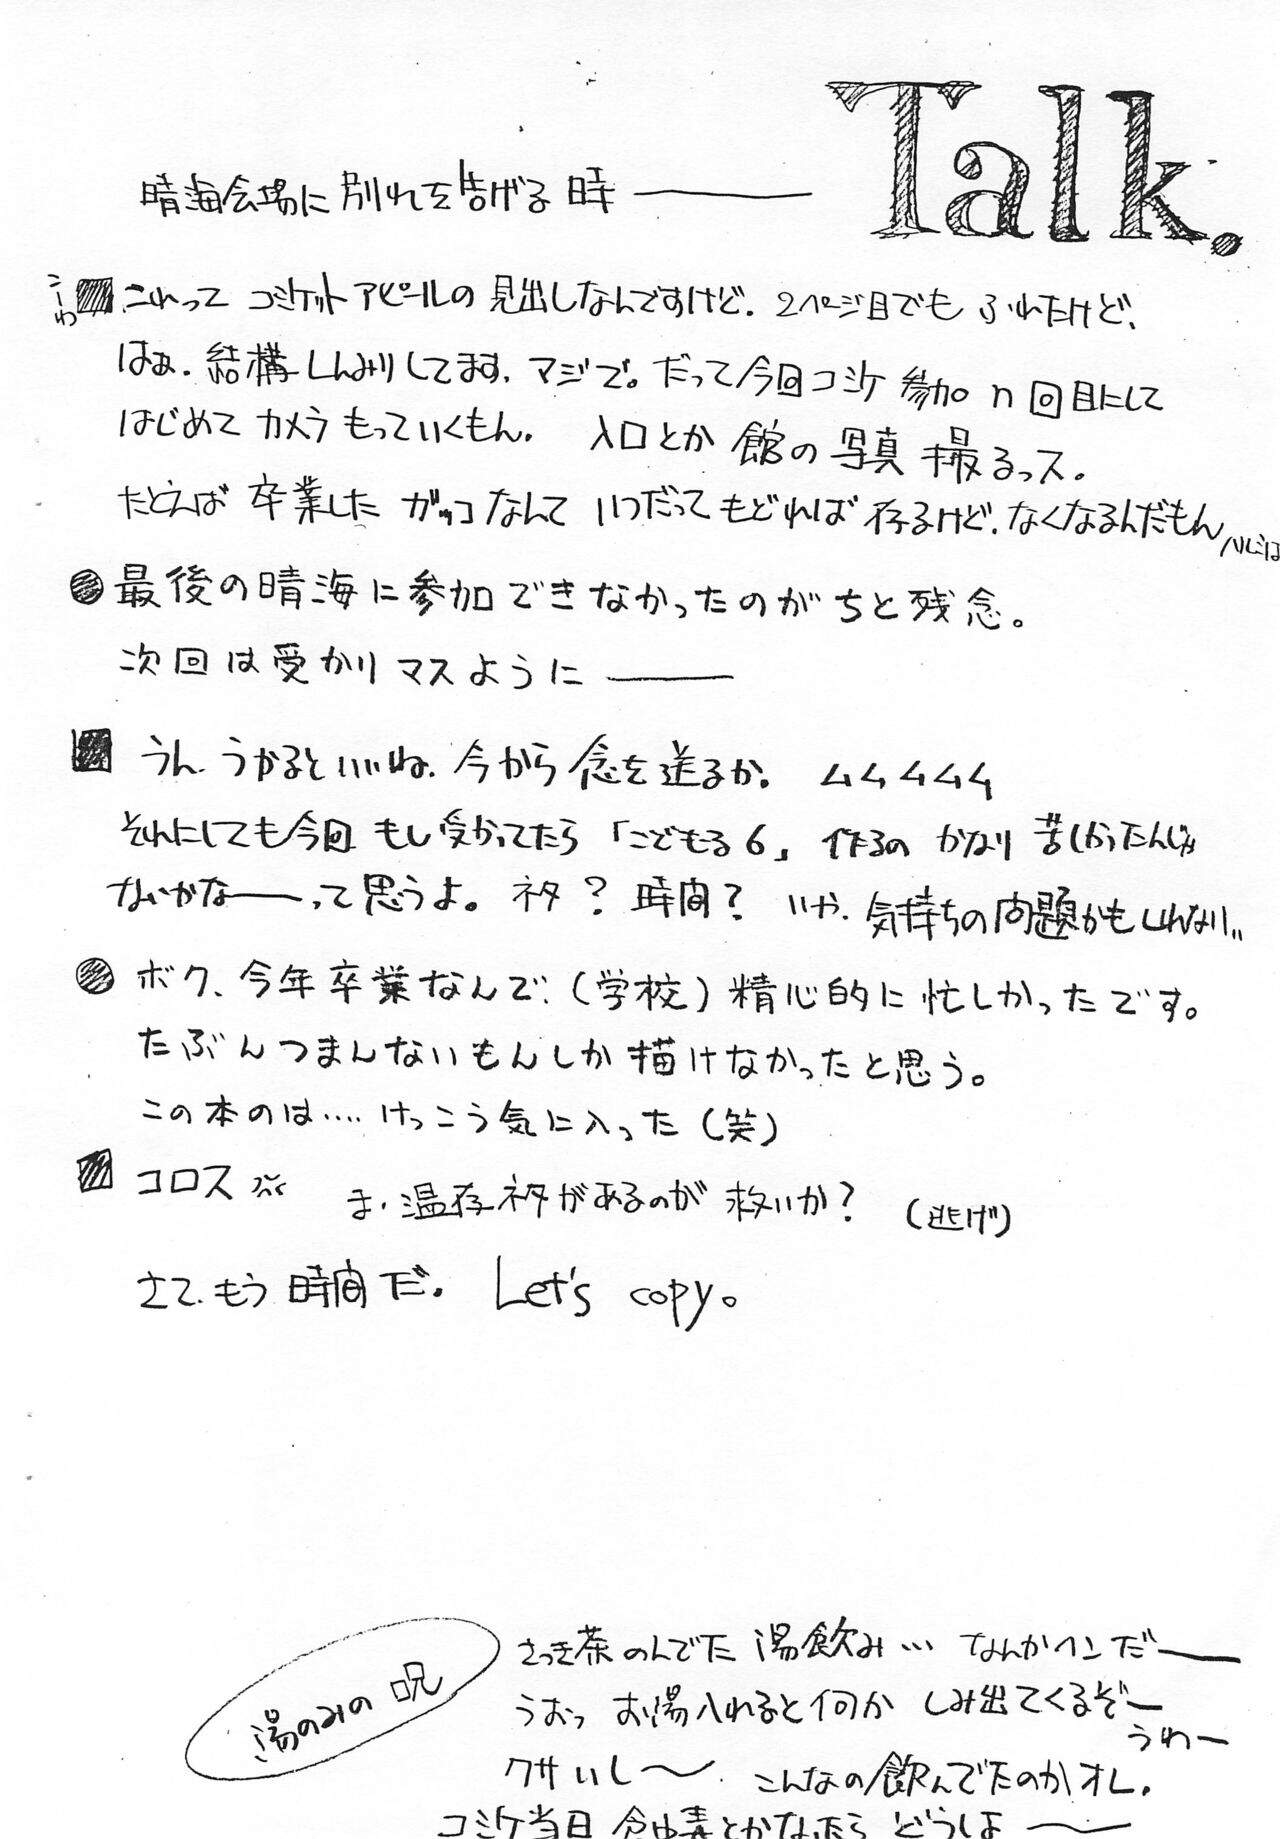 Talk.
晴海会場に別れを告げる時 ――
こーわ
■ これって コミケットアピールの 見出しなんですけど. 2ページ目でも ふれたけど、
はぁ. 結構 しんみりしてます. マジで。だって今回コミケ 参加 n回目にして
はじめて カメラ もっていくもん. 入口とか 館の 写真 撮るっス.
たとえば 卒業した ガッコなんて いつだって もどれば 存るけど. なくなるんだもん ハルミは
● 最後の晴海に参加できなかったのがちと残念。
次回は受かりマスように ――
■ うん. うかるといいね. 今から 念を送るか. ムムムムム
それにしても今回 もし受かってたら 「こどもる6」 作るの かなり 苦しかったんじゃ
ないかな――って思うよ。 ネタ? 時間? いや. 気持ちの問題かもしれない..
● ボク、今年卒業なんで、(学校) 精心的に忙しかったです。
たぶんつまんないもんしか描けなかったと思う。
この本のは‥‥けっこう気に入った(笑)
■ コロス
ま. 温存ネタがあるのが 救いか? (逃げ)
さて. もう 時間だ. Let's copy。
湯のみの呪
さっき茶のんでた 湯飲み… なんかヘンだ――
うおっ お湯入れると何か しみ出てくるぞー
うわー
クサいし〜 こんなの飲んでたのかオレ.
コミケ当日 食中毒とかなったら どうしよ〜